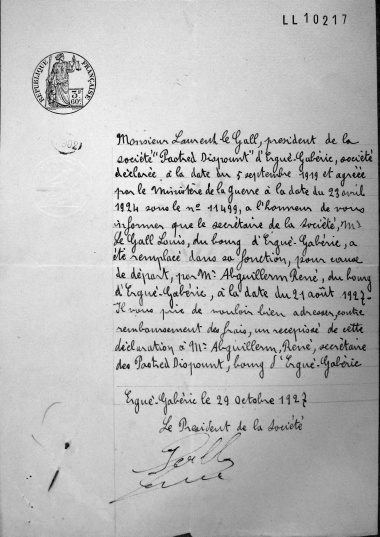 LL10217
RÉPUBLIQUE FRANÇAISE
3F
60c
Monsieur Laurent le Gall, président de la
société "Paotred Dispount" d'Ergué-Gabéric, société
déclarée à la date du 5 septembre 1919 et agréée
par le Ministère de la Guerre à la date du 23 avril
1924 sous le no 11499, a l'honneur de vous
informer que le secrétaire de la Société, Mr
Le Gall Louis, du bourg d'Ergué-Gabéric, a
été remplacé dans sa fonction, pour cause
de départ, par Mr Abguillerm René, du bourg
d'Ergué-Gabéric, à la date du 21 août 1927-
Il vous prie de vouloir bien adresser, contre
remboursement des frais, un recepissé de cette
déclaration à Mr Abguillerm, René, secrétaire
des Paotred Dispount, bourg d'Ergué-Gabéric
Ergué-Gabéric le 29 Octobre 1927
Le President de la Société